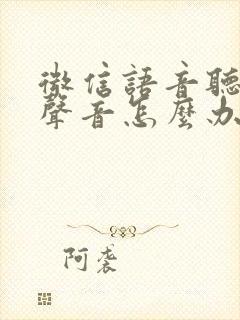 微信語音聽
聲音怎麼办
阿袭